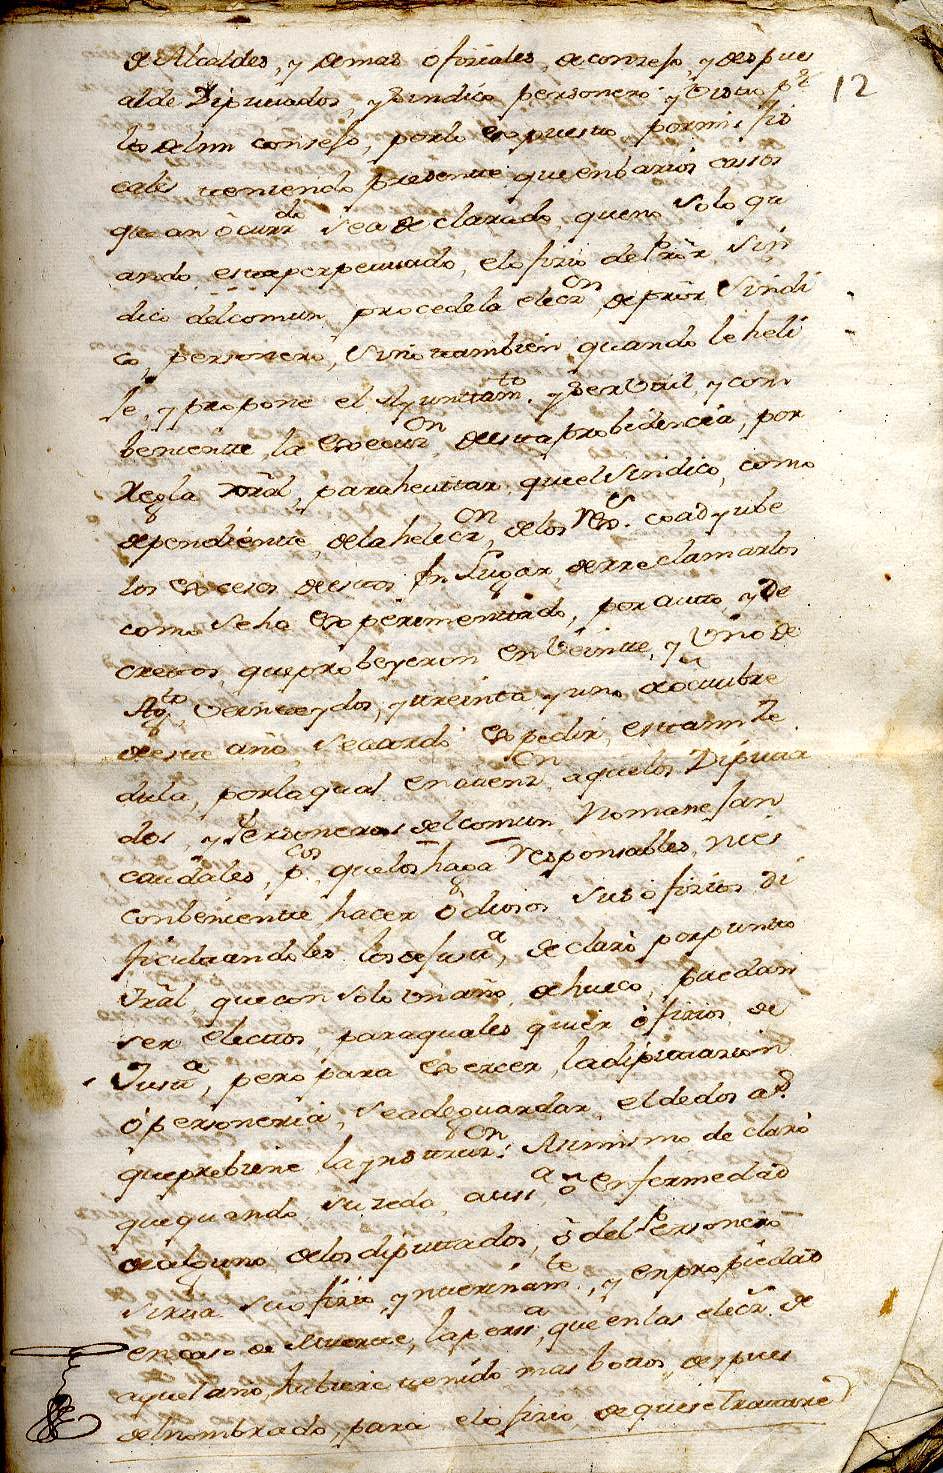 de Alcaldes, y demas ofiziales, de consejo, y despues
12
al de Diputados, y Sindico personero; y Visto pr.
los del mi consejo, por lo expuesto, por mis fis
cales teniendo presente que en barios casos
que an ôcurrdo sea declarado, que no solo qu
ando esta perpetuado, el ofizio de Pror. Sin
dico del comun, procede la eleczon de pror Sindi
co, personero, Sino tambien quando le heli
je, y propone el Ayunttamto. y Ser Util, y com
beniente, la Execuzon de esta probidencia, por
Regla Gral, para hevitar, que el Sindico, como
dependiente, de la heleczon, de los Rexs. coadyube
los excesos de estos En Lugar, de rreclamarlos
como se ha Experimentado, por autto, y De
cretos, que probeyeron en Veinte, y Uno de
Agto, Veinte y dos, y treinta y uno, de octubre
de este año, Se acordó expedir, esta mi Ze
dula, por la qual en atenzon a que los Diputa
dos, y Personeros del comun No manejan
caudales, pcos. que los haga responsables, ni es
conbeniente hacer ôdiosos sus ofizios, di
ficultandoles los de justa, declaro por punto
Gral, que con solo un año, de hueco, puedan
ser electtos, para quales quier ofizios, de
Justa, pero para exercer, la diputazion
ô personeria, Se ade guardar, el de dos as.
que prebiene la ynstruzon: Asimismo declaro
que quando suzeda, ausa ô enfermedad
de alguno de los diputtados, ô del Personero
sirva su ofizio, ynterinamte, y en propiedad
en caso de Muerte, la persa, que en las elecs. de
aquel año, hubiere tenido mas bottos, despues
del nombrado, para el ofizio, de que se tratare